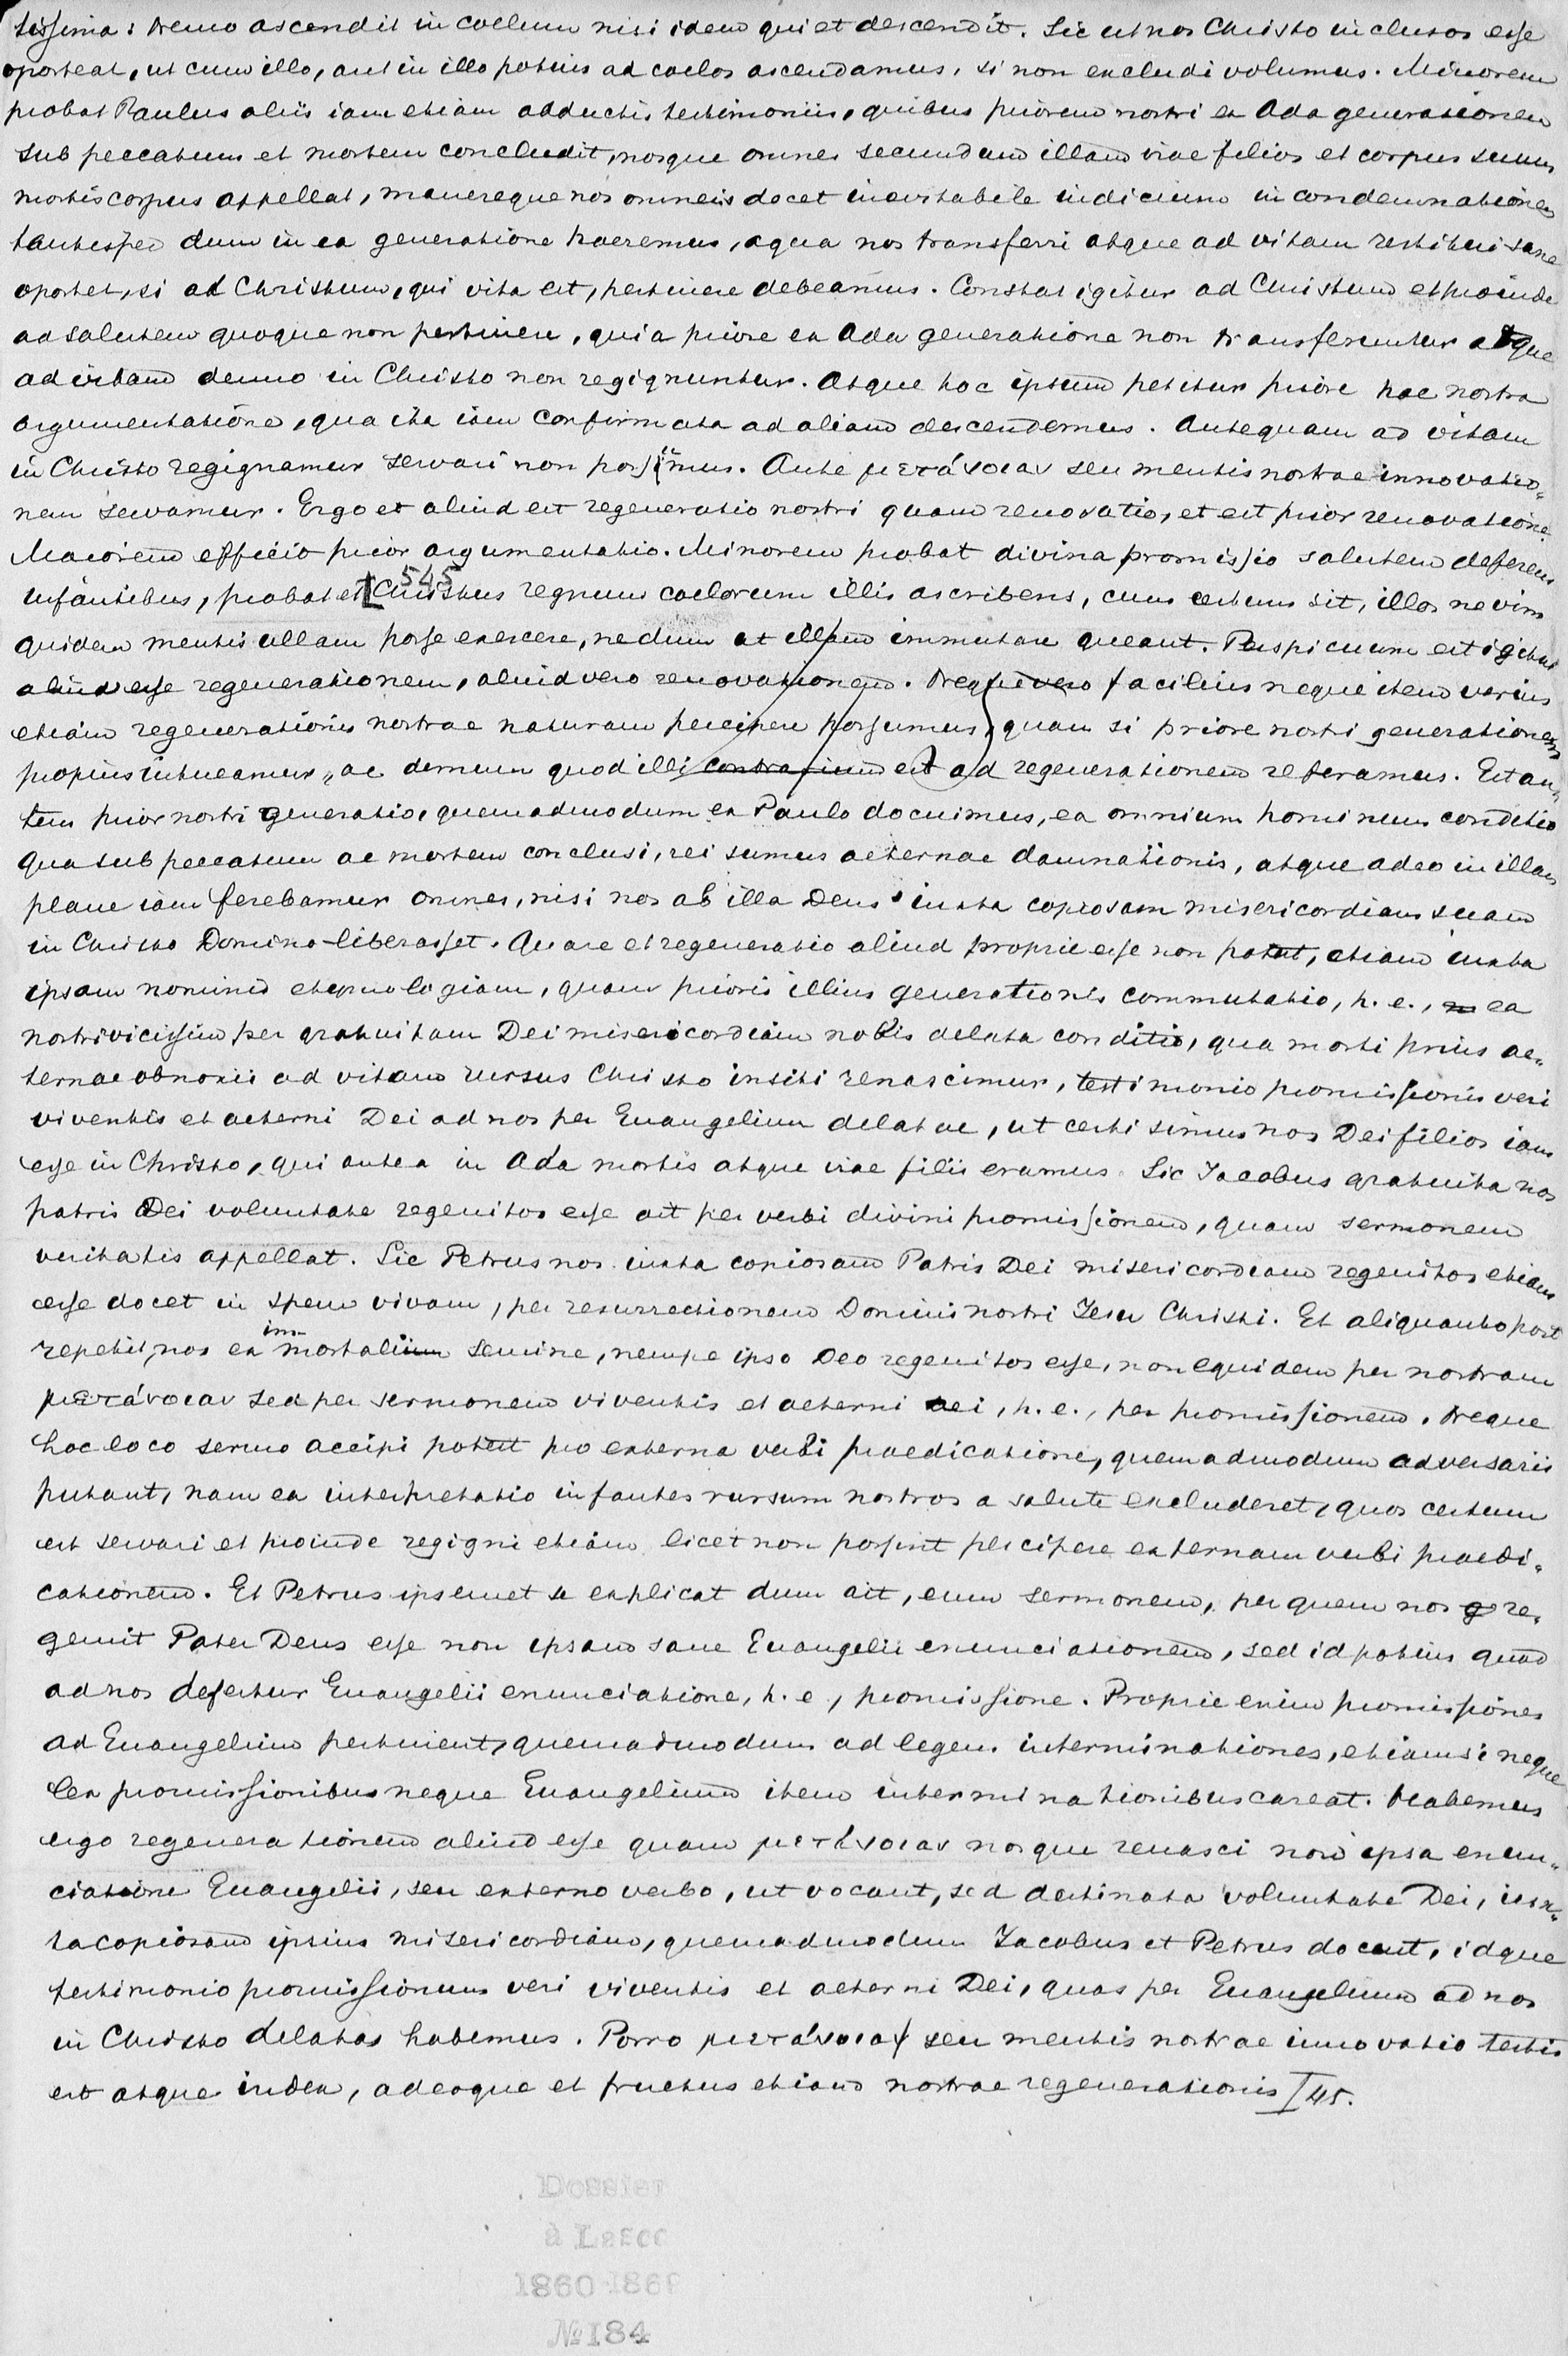 tissima: Nemo ascendit in coelum nisi idem qui et descendit. Sic ut nos Christo inclusos esse
oporteat, ut cum illo, aut in illo potius ad coelos ascendamus, si non excludi volumus. Minorem
probat Paulus aliis iam etiam adductis testimoniis, quibus priorem nostri ex Ada generationem
sub peccatum et mortem concludit, nosque omnes secundum illam irae filios et corpus suum
mortis corpus appellat, manereque nos omneis docet inevitabile iudicium in condemnationem
tantisper dum in ea generatione haeremus, a qua nos transferri atque ad vitam restitui sane
oportet, si ad Christum, qui vita est, pertinere debeamus. Constat igitur ad Christum et proinde
ad salutem quoque non pertinere, qui a priore ex Ada generatione non transferuntur atque
ad vitam denuo in Christo non regignuntur. Atque hoc ipsum petitur priore hac nostra
argumentatione, qua ita iam confirmata ad aliam descendemus. Antequam ad vitam
in Christo regignamur servari non possimus. Ante μετάνοιαν seu mentis nostrae innovatio-
nem servamur. Ergo et aliud est regeneratio nostri quam renovatio, et est prior renovatione
Maiorem efficit prior argumentatio. Minorem probat divina promissio salutem deferens
infantibus, probat et [545 Christus regnum coelorum illis ascribens, cum certum sit, illos ne vim
quidem mentis ullam posse exercere, nedum ut illam immutare queant. Perspicuum est igitur
aliud esse regenerationem, aliud vero renovationem. Neque vero facilius neque item verius
etiam regenerationis nostrae naturam percipere possumus, quam si priore nostri generationem
propius intueamur, ac demum quod illi contrarium est ad regenerationem referamus. Est au-
tem prior nostri generatio, quemadmodum ex Paulo docuimus, ea omnium hominum conditio
qua sub peccatum ac mortem conclusi, rei sumus aeternae damnationis, atque adeo in illam
plane iam ferebamur omnes, nisi nos ab illa Deus iuxta copiosam misericordiam suam
in Christo Domino liberasset. Quare et regeneratio aliud proprie esse non potest, etiam iuxta
ipsam nominis etymologiam, quam prioris illius generationis commutatio, h. e., ea
nostri vicissim per gratuitam Dei misericordiam nobis delata conditio, qua morti prius ae-
ternae obnoxii ad vitam rursus Christo insiti renascimur, testimonio promissionis veri
viventis et aeterni Dei ad nos per Euangelium delatae, ut certi simus nos Dei filios iam
esse in Christo, qui antea in Ada mortis atque irae filii eramus. Sic Jacobus gratuita nos
patris Dei voluntate regenitos esse ait per verbi divini promissionem, quam sermonem
veritatis appellat. Sic Petrus nos iuxta copiosam Patris Dei misericordiam regenitos etiam
esse docet in spem vivam, per resurrectionem Domini nostri Jesu Christi. Et aliquanto post
repetit, nos ex immortali semine, nempe ipso Deo regenitos esse, non equidem per nostram
μετάνοιαν sed per sermonem viventis et aeterni Dei, h. e., per promissionem. Neque
hoc loco sermo accipi potest pro externa verbi praedicatione, quemadmodum adversarii
putant, nam ea interpretatio infantes rursum nostros a salute excluderet, quos certum
est servari et proinde regigni etiam licet non possint percipere externam verbi praedi-
cationem. Et Petrus ipsemet se explicat dum ait, eum sermonem, per quem nos re-
genuit Pater Deus esse non ipsam sane Euangelii enunciationem, sed id potius quod
ad nos defertur Euangelii enunciatione, h. e., promissione. Proprie enim promissiones
ad Euangelium pertinent, quemadmodum ad legem interminationes, etiamsi neque
lex promissionibus neque Euangelium item interminationibus careat. Habemus
ergo regenerationem aliud esse quam μετάνοιαν nosque renasci non ipsa enun-
ciatione Euangelii, seu externo verbo, ut vocant, sed destinata voluntate Dei, iux-
ta copiosam ipsius misericordiam, quemadmodum Jacobus et Petrus docent, idque
testimonio promissionum veri viventis et aeterni Dei, quas per Euangelium ad nos
in Christo delatas habemus. Porro μετάνοια seu mentis nostrae innovatio testis
est atque index, adeoque et fructus etiam nostrae regenerationis I 45.
Dossier
à Lasco
1860-1869
№ 184